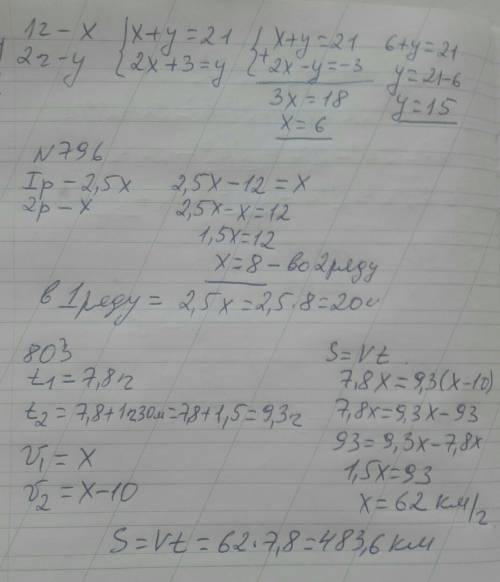 1г - x { x+y=21 { x+y=21 6+y=21
2г - y { 2x+3=y + 2x-y=-3 y=21-6
3x=18 y=15
x=6
N796
Iр - 2,5x 2,5x-12=x
2р - x 2,5x-x=12
1,5x=12
x=8 - во 2 ряду
в 1 ряду = 2,5x=2,5·8=20
803 S=Vt
t₁=7,8ч 7,8x=9,3(x-10)
t₂=7,8+1ч30м=7,8+1,5=9,3ч 7,8x=9,3x-93
93=9,3x-7,8x
V₁=x 1,5x=93
V₂=x-10 x=62 км/ч
S=Vt=62·7,8=483,6 км